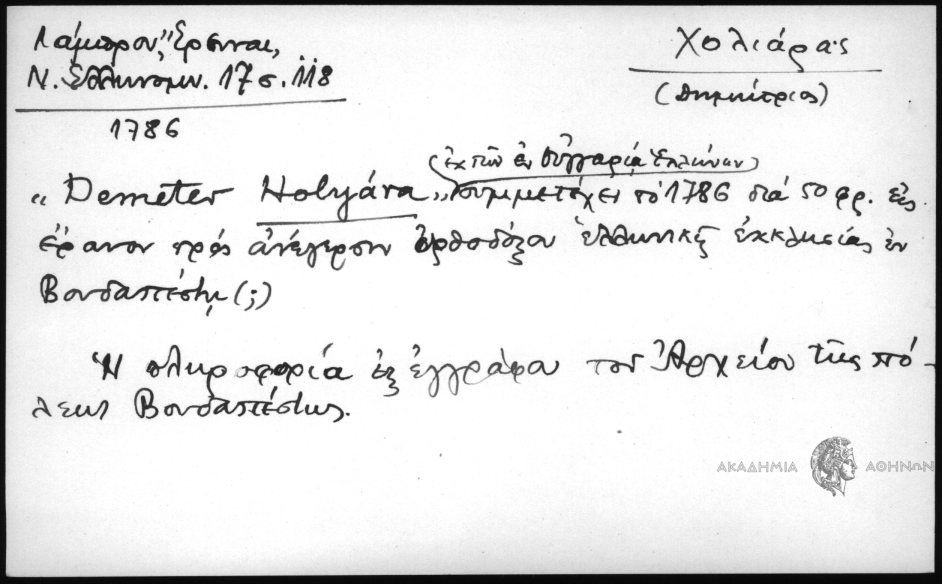 Λάμπρου, "Ἔρευναι,
Ν. Ἑλληνομν. 17 σ. 118
1786
Χολιάρας
(Δημήτριος)
(ἐκ τῶν ἐν Οὑγγαρίᾳ Ἑλλήνων)
"Demeter Holyára" συμμετέχει τὸ 1786 διὰ 50 φρ. εἰς
ἔρανον πρὸς ἀνέγερσιν ὀρθοδόξου ἑλληνικῆς ἐκκλησίας ἐν
Βουδαπέστῃ (;)
Ἡ πληροφορία ἐξ ἐγγράφου τοῦ Ἀρχείου τῆς πό-
λεως Βουδαπέστης.
ΑΚΑΔΗΜΙΑ ΑΘΗΝΩΝ